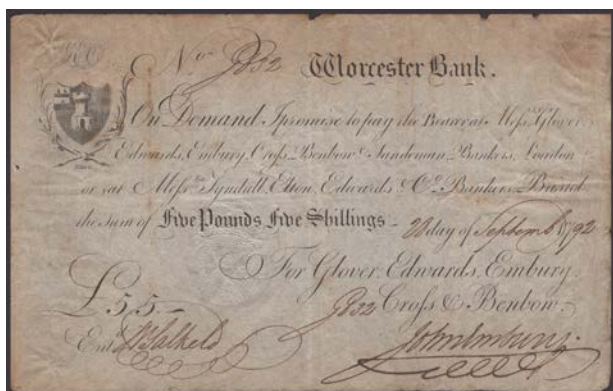 No. Worcester Bank.
On Demand I promise to pay the Bearer at Messrs. Glover
Edwards, Embury, Cross, Benbow & Sandeman, Bankers, London
or at Messrs. Tyndall, Elton, Edwards & Co. Bankers, Bristol
the Sum of Five Pounds Five Shillings day of Septemb. 1792
For Glover, Edwards, Embury
£5,5 Cross & Benbow
Entd. Salkeld John Embury